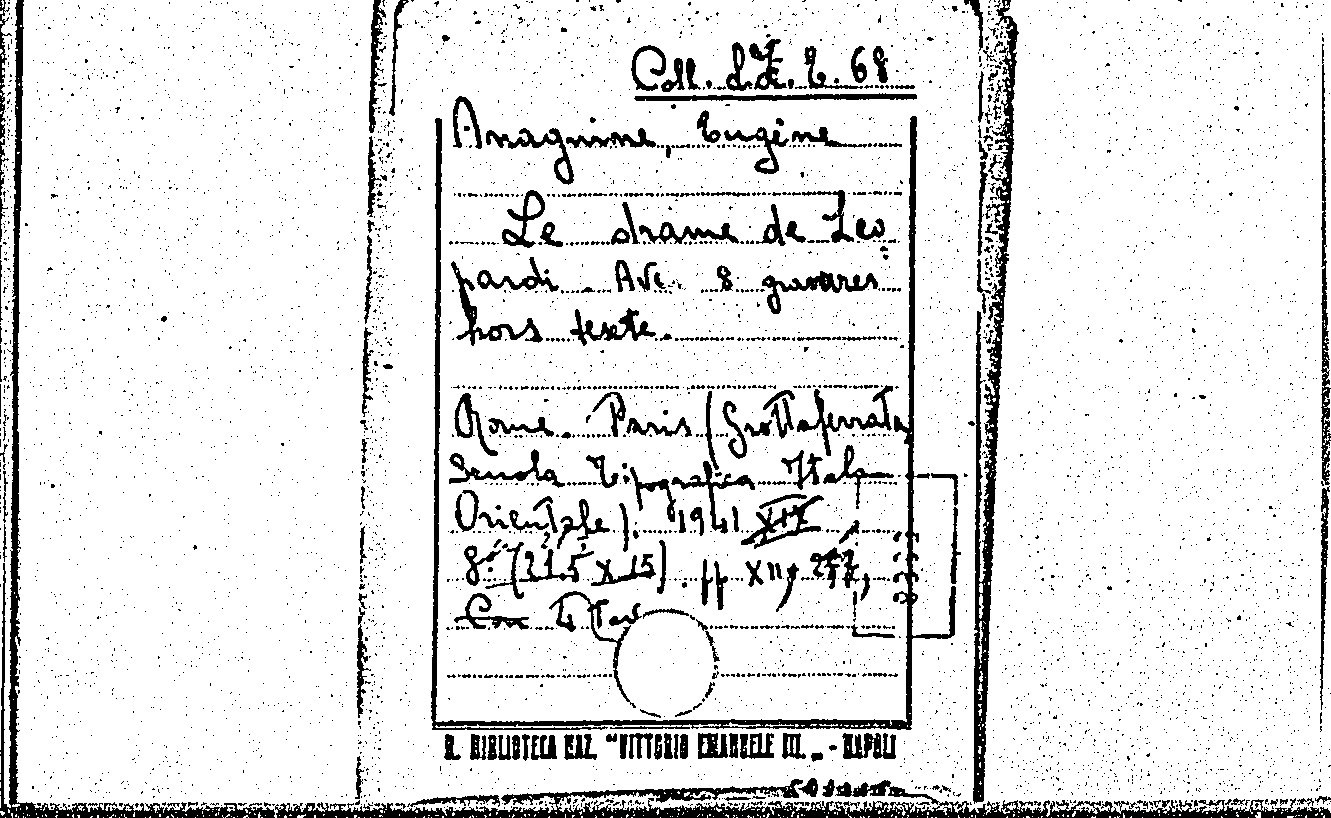 Coll. E. 68
Anagnine, Eugène
Le drame de Leo
pardi. Avc 8 gravures
hors texte.
Rome. Paris (Grottaferrata,
Scuola Tipografica Italo
Orientale). 1941 XIX
8° (21.5 x 15). pp XII, 277,
Con 4 Tav
R. BIBLIOTECA NAZ. "VITTORIO EMANUELE III. „ - NAPOLI